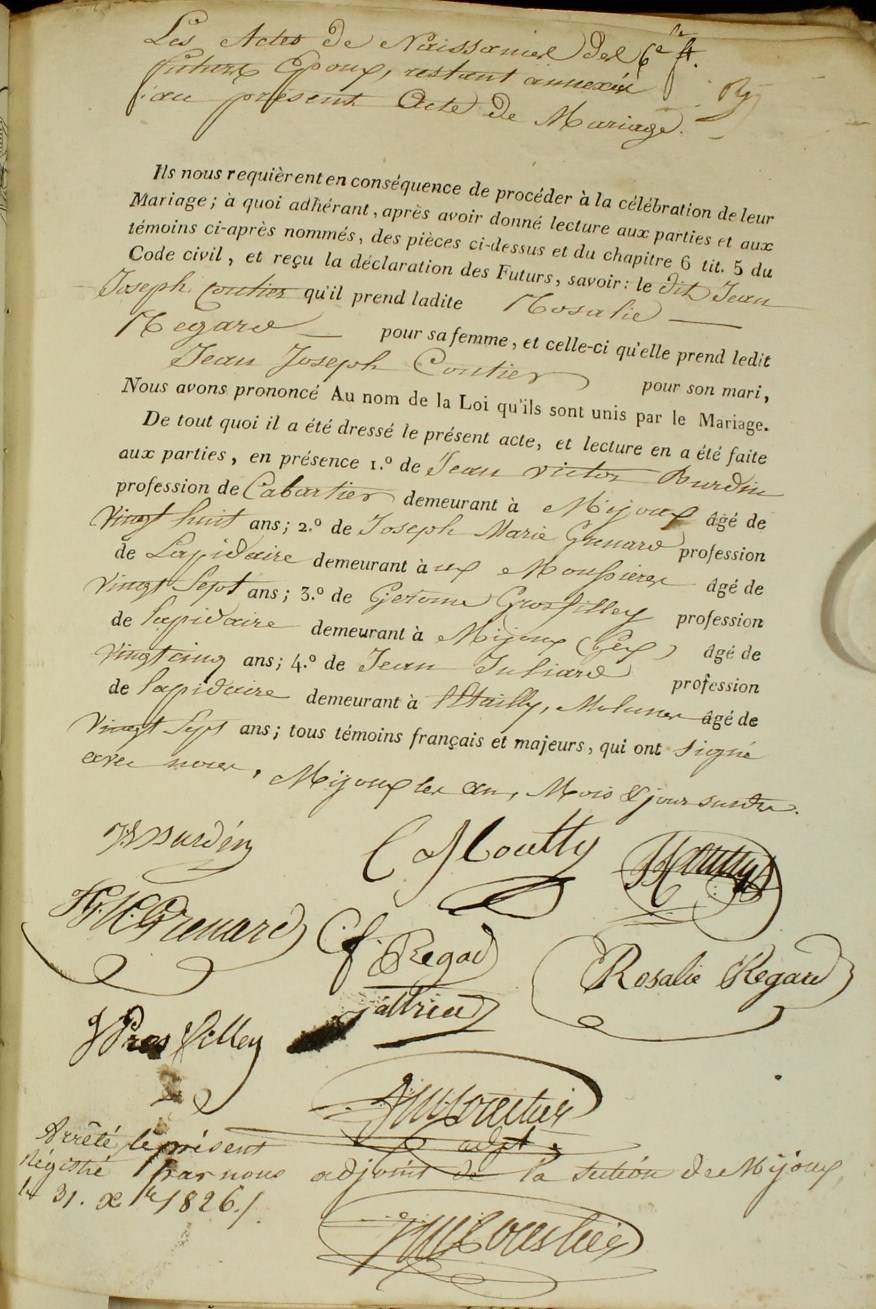 Les Actes de Naissances des
futurs Epoux, restant annexés
au présent Acte de Mariage.
Ils nous requièrent en conséquence de procéder à la célébration de leur
Mariage ; à quoi adhérant, après avoir donné lecture aux parties et aux
témoins ci-après nommés, des pièces ci-dessus et du chapitre 6 tit. 5 du
Code civil, et reçu la déclaration des Futurs, savoir : le dit Jean
Joseph Coutier qu'il prend ladite Rosalie
Regard pour sa femme, et celle-ci qu'elle prend ledit
Jean Joseph Coutier pour son mari,
Nous avons prononcé Au nom de la Loi qu'ils sont unis par le Mariage.
De tout quoi il a été dressé le présent acte, et lecture en a été faite
aux parties, en présence 1.º de Jean Victor Burdin
profession de Cabartier demeurant à Mijoux âgé de
Vingt huit ans ; 2.º de Joseph Marie Grenard profession
de Lapidaire demeurant à ux Moussieres âgé de
Vingt Sept ans ; 3.º de Gerome Grosfilley profession
de lapidaire demeurant à Mijoux (Gex) âgé de
Vingt cinq ans ; 4.º de Jean Juliard profession
de lapidaire demeurant à Molunes âgé de
Vingt Sept ans ; tous témoins français et majeurs, qui ont signé
avec nous, Mijoux les an, Mois & jour susdits.
Burdin
Grenard
Regad
Rosalie Regard
Gros filley
adjt.
Arrêté le présent
Régistre par nous adjoint de la section de Mijoux,
le 31. Xbre 1826./.